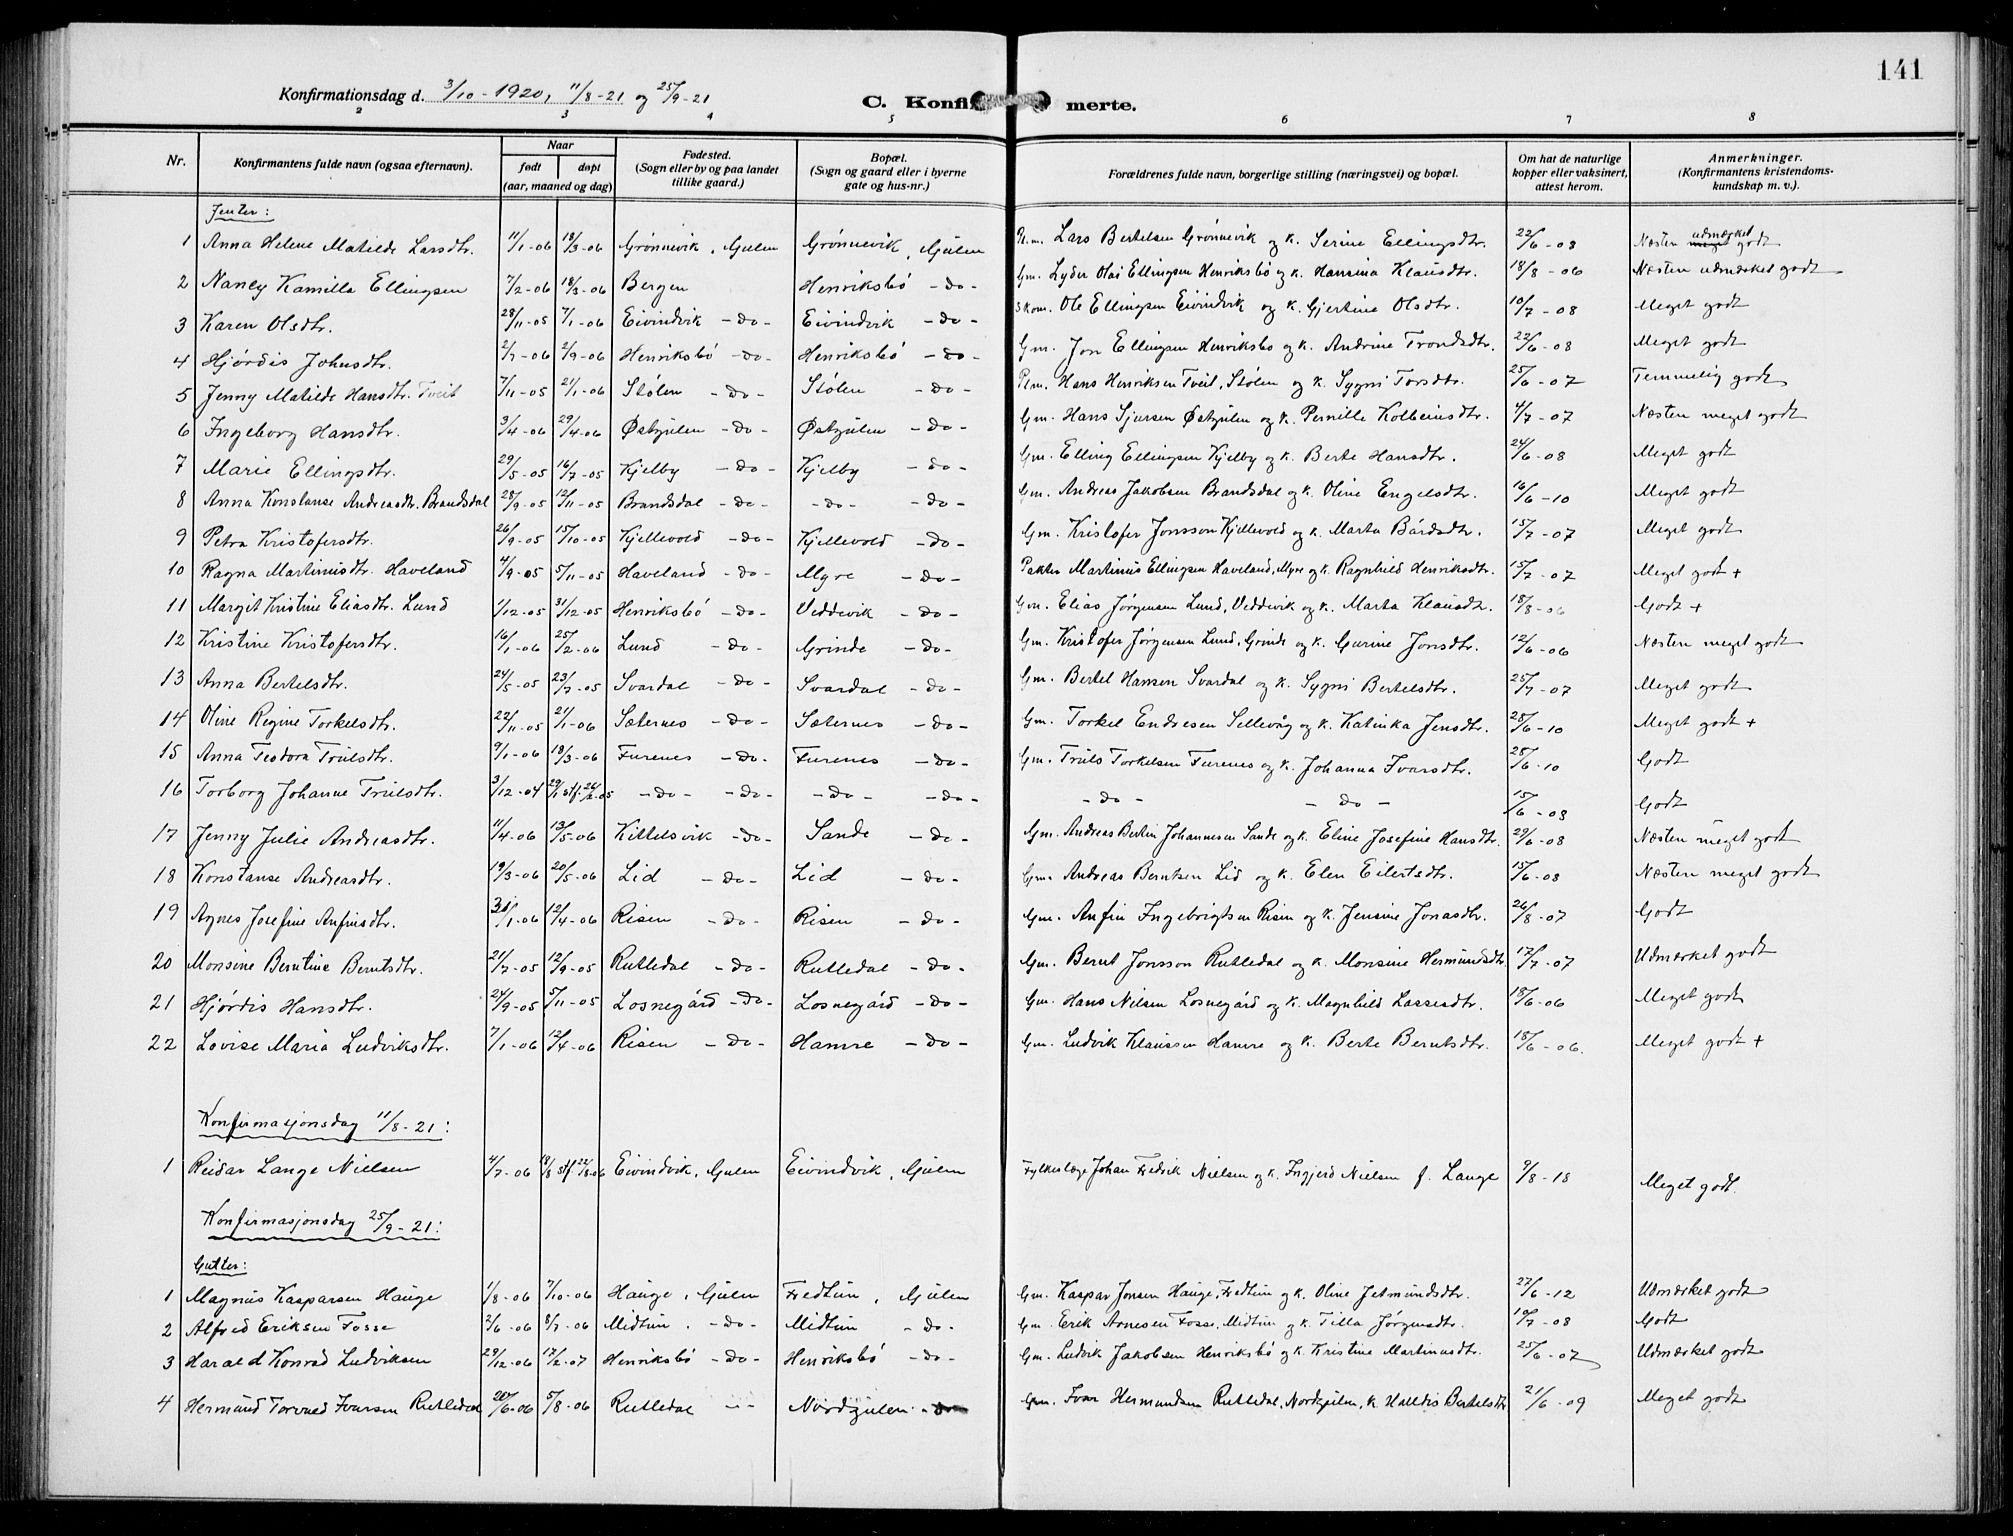 141
Konfirmationsdag d. 3/10 - 1920, 11/8-21 og 25/9-21
C. Konfi merte.
2 3 4 5 6 7 8
Nr. Konfirmantens fulde navn (ogsaa efternavn). Naar født døpt (aar, maaned og dag) Fødested. (Sogn eller by og paa landet tillike gaard.) Bopæl. (Sogn og gaard eller i byerne gate og hus-nr.) Forældrenes fulde navn, borgerlige stilling (næringsvei) og bopæl. Om hat de naturlige kopper eller vaksinert, attest herom. Anmerkninger. (Konfirmantens kristendoms- kundskap m. v.).
Jenter:
1 Anna Helene Matilde Larsdtr. 11/1-06 18/3-06 Grønnevik, Gulen Grønnevik, Gulen Lars Bertelsen Grønnevik og k. Serine Ellingsdtr. 22/6-08 Næsten udmerket godt
2 Nancy Kamilla Ellingsen 7/2-06 18/3-06 Bergen Henriksbø -do- Gm. Lyder Olai Ellingsen Henriksbø og k. Hansina Klausdtr. 18/8-06 Næsten udmerket godt
3 Karen Olsdtr. 28/11-05 7/1-06 Eivindvik -do- Eivindvik -do- Skom. Ole Ellingsen Eivindvik og k. Gjertine Olsdtr. 10/7-08 Meget godt
4 Hjørdis Johnsdtr. 2/7-06 2/9-06 Henriksbø -do- Henriksbø -do- Gm. Jon Ellingsen Henriksbø og k. Andrine Trondsdtr. 22/6-08 Meget godt
5 Jenny Matilde Hansdtr. Tveit 7/11-05 21/1-06 Stølen -do- Stølen -do- Plm. Hans Henriksen Tveit, Stølen og k. Sygni Torsdtr. 25/6-07 Temmelig godt
6 Ingeborg Hansdtr. 3/4-06 29/4-06 Østgulen -do- Østgulen -do- Gm. Hans Sjursen Østgulen og k. Pernille Kolbeinsdtr. 4/7-07 Næsten meget godt
7 Marie Ellingsdtr. 29/5-05 16/7-05 Kjelby -do- Kjelby -do- Gm. Elling Ellingsen Kjelby og k. Berte Hansdtr. 24/6-08 Meget godt
8 Anna Konstanse Andreasdtr. Brandsdal 28/9-05 12/11-05 Brandsdal -do- -do- -do- Gm. Andreas Jakobsen Brandsdal og k. Oline Engelsdtr. 16/6-10 Meget godt
9 Petra Kristofersdtr. 26/9-05 15/10-05 Kjellevold -do- Kjellevold -do- Gm. Kristofer Jonsson Kjellevold og k. Marta Bårdsdtr. 15/7-07 Meget godt
10 Ragna Martinusdtr. Haveland 4/9-05 5/11-05 Haveland -do- Myre -do- Pakter Martinius Ellingsen Haveland, Myre og k. Ragnhild Henriksdtr. 15/7-07 Meget godt +
11 Margit Kristine Eliasdtr. Lund 1/12-05 31/12-05 Henriksbø -do- Veddevik -do- Gm. Elias Jørgensen Lund, Veddevik og k. Marta Klausdtr. 18/8-06 Godt +
12 Kristine Kristofersdtr. 16/1-06 25/2-06 Lund -do- Grinde -do- Gm. Kristofer Jørgensen Lund, Grinde og k. Gurine Jonsdtr. 12/6-06 Næsten meget godt
13 Anna Bertelsdtr. 24/5-05 23/7-05 Svardal -do- Svardal -do- Gm. Bertel Hansen Svardal og k. Sygni Bertelsdtr. 25/7-07 Meget godt
14 Oline Regine Torkelsdtr. 22/11-05 21/1-06 Sæternes -do- Sæternes -do- Gm. Torkel Endresen Sellevåg og k. Katinka Jensdtr. 28/6-10 Meget godt +
15 Anna Teodora Trulsdtr. 9/1-06 18/3-06 Furenes -do- Furenes -do- Gm. Truls Torkelsen Furenes og k. Johanna Ivarsdtr. 28/6-10 Godt
16 Torborg Johanne Trulsdtr. 3/12-04 29/1 stf. 26/2-05 -do- -do- -do- -do- -do- -do- 15/6-08 Godt
17 Jenny Julie Andreasdtr. 11/4-06 13/5-06 Kittelsvik -do- Sande -do- Gm. Andreas Bertin Johannesen Sande og k. Eline Josefine Hansdtr. 29/6-08 Næsten meget godt
18 Konstanse Andreasdtr. 19/3-06 20/5-06 Lid -do- Lid -do- Gm. Andreas Berntsen Lid og k. Elen Eilertsdtr. 15/6-08 Næsten meget godt
19 Agnes Josefine Anfinsdtr. 31/1-06 12/4-06 Risen -do- Risen -do- Gm. Anfin Ingebrigtsen Risen og k. Jensine Jonasdtr. 26/8-07 Godt
20 Monsine Berntine Berntsdtr. 21/7-05 12/9-05 Rutledal -do- Rutledal -do- Gm. Bernt Jonsson Rutledal og k. Monsine Hermundsdtr. 17/7-07 Udmerket godt
21 Hjørdis Hansdtr. 24/9-05 5/11-05 Losnegård -do- Losnegård -do- Gm. Hans Nilsen Losnegård og k. Magnhild Lassesdtr. 18/6-06 Meget godt
22 Lovise Maria Ludviksdtr. 7/1-06 12/4-06 Risen -do- Hamre -do- Gm. Ludvik Klaussen Hamre og k. Berte Berntsdtr. 18/6-06. Meget godt +
Konfirmasjonsdag 11/8-21:
1 Reidar Lange Nielsen 4/7-06 19/8 stf 22/8-06 Eivindvik, Gulen Eivindvik, Gulen Fylkeslæge Johan Fredrik Nielsen og k. Ingjerd Nielsen f. Lange 9/8-18 Meget godt.
Konfirmasjonsdag 25/9-21:
Gutter:
1 Magnus Kasparsen Hauge 1/8-06 7/10-06 Hauge, Gulen Fredtun, Gulen Gm. Kaspar Jonsen Hauge, Fredtun og k. Oline Jetmundsdtr. 27/6-12 Udmerket godt
2 Alfred Eriksen Fosse 2/6-06 8/7-06 Midtun, -do- Midtun -do- Gm. Erik Arnesen Fosse, Midtun og k. Tilla Jørgensdtr. 10/7-08 Godt
3 Harald Konrad Ludviksen 29/12-06 17/2-07 Henriksbø -do- Henriksbø -do- Gm. Ludvik Jakobsen Henriksbø og k. Kristine Martinusdtr. 25/6-07 Udmerket godt
4 Hermund Torvald Ivarsen Rutledal 20/6-06 5/8-06 Rutledal -"- Nordgulen -do- Gm. Ivar Hermundsen Rutledal, Nordgulen, k. Halldis Bertelsdtr 21/6-09 Meget godt